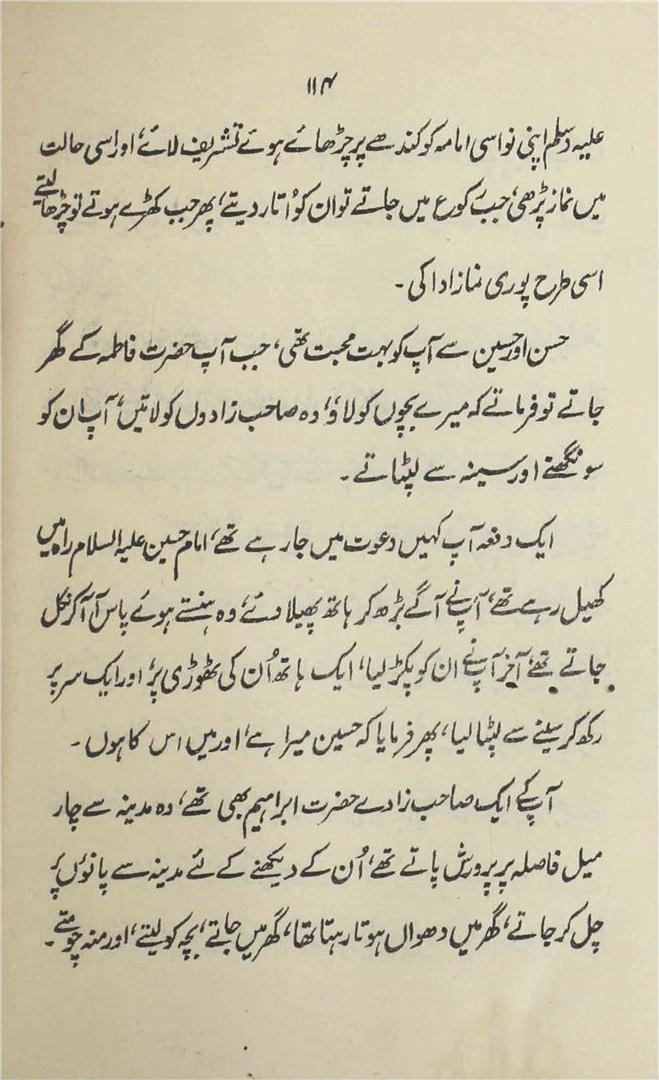 ۱۱۴
علیہ وسلم اپنی نواسی امامہ کو کندھے پر چڑھائے ہوئے تشریف لائے، اور اسی حالت
میں نماز پڑھی، جب رکوع میں جاتے تو ان کو اُتار دیتے، پھر جب کھڑے ہوتے تو چڑھا لیتے
اسی طرح پوری نماز ادا کی۔
حسن اور حسین سے آپ کو بہت محبت تھی، جب آپ حضرت فاطمہ کے گھر
جاتے تو فرماتے کہ میرے بچوں کو لاؤ، وہ صاحب زادوں کو لاتیں، آپ ان کو
سونگھتے اور سینہ سے لپٹاتے۔
ایک دفعہ آپ کہیں دعوت میں جا رہے تھے، امام حسین علیہ السلام راہ میں
کھیل رہے تھے، آپ نے آگے بڑھ کر ہاتھ پھیلا دئے، وہ ہنستے ہوئے پاس آ آ کر نکل
جاتے تھے، آخر آپ نے ان کو پکڑ لیا، ایک ہاتھ اُن کی ٹھوڑی پر، اور ایک سر پر
رکھ کر سینے سے لپٹا لیا، پھر فرمایا کہ حسین میرا ہے، اور میں اس کا ہوں۔
آپ کے ایک صاحب زادے حضرت ابراہیم بھی تھے، وہ مدینہ سے چار
میل فاصلہ پر پرورش پاتے تھے، اُن کے دیکھنے کے لئے مدینہ سے پانوں پر
چل کر جاتے، گھر میں دھواں ہوتا رہتا تھا، گھر میں جاتے، بچہ کو لیتے، اور منہ چومتے۔